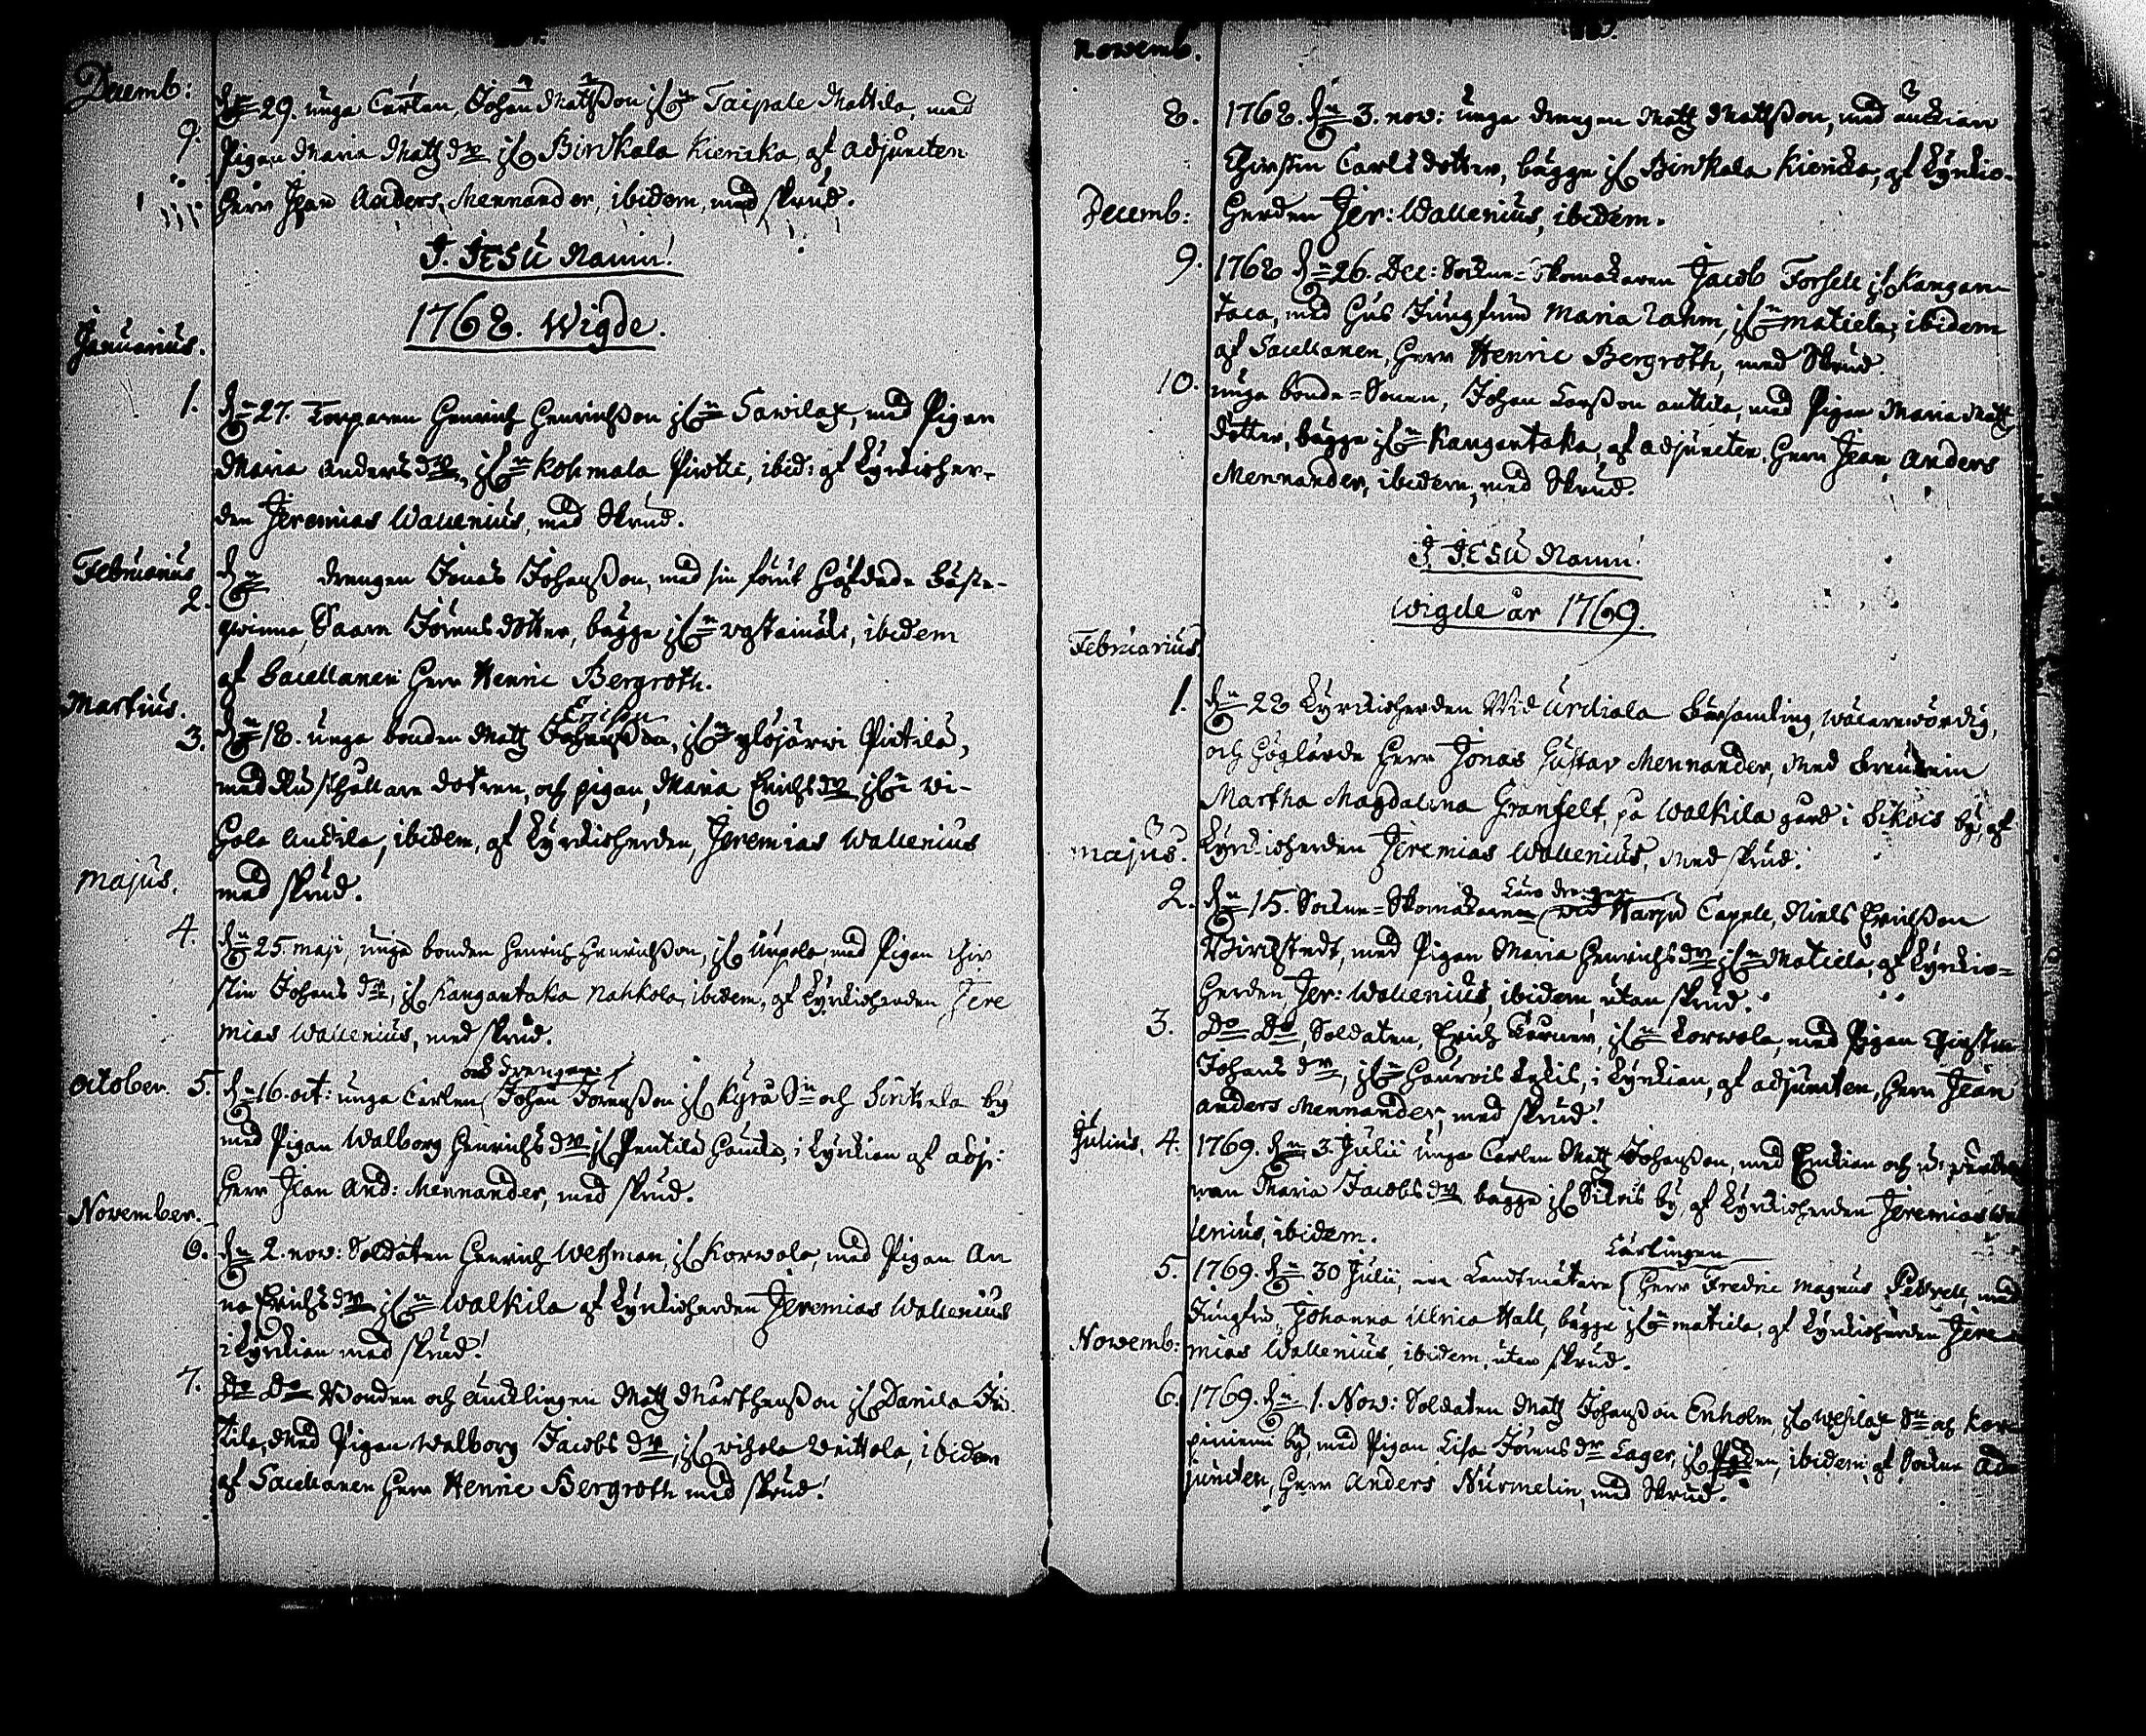 Decemb:
9.
dn 29. unga Carlen, Johan Mattsson ifrn Taipale Mattila, med
Pigan Maria Matz dr ifr Birkala Kiericka, af adjuncten
Herr Jean Anders Mennander, ibidem, med skrud.
J. JESU Namn!
1768. Wigde.
Januarius.
1. dn 27. Torparen Henrich Henrichsson ifrn Sawilax, med Pigan
Maria Anders dr, ifrn Kohmala, ibid: af Kyrckioher-
den Jeremias Wallenius, med Skrud.
Februarius
2. dn drengen Jonas Johansson, med sin förut häfdade Fäste-
qwinna, Saara Jörensdotter, bägge ifrn, ibidem
af Sacellanen Herr Henric Bergroth.
Martius.
Ericson
3. dn 18. unga bonden Matz Johansson, ifrn Ylöjärwi Pirtilä,
med Rusthållare dotren, och pigan, Maria Erichs dr ifrn Wi-
hola Andila, ibidem, af Kyrckioherden, Jeremias Wallenius
med skrud.
Majus.
4. dn 25 maji, unga bonden Henrich Henrichsson, ifr Uxpola med Pigan Chir
stin Johans dr, ifr Kangantaka Nahkola, ibidem, af Kyrckioherden Jere
mias Wallenius, med skrud.
och drengen
October. 5. dn 16. oct: unga Carlen Johan Jörensson ifr Kyrö Sn och by
med Pigan Walborg Henrichs dr ifr Pentilä, i Kyrckian af adj:
Herr Jean And: Mennander, med skrud.
November.
6. dn 2. nov: Soldaten Henrich Wessman, ifr Korwola, med Pigan An
na Erichs dr ifrn Walkila af Kyrckioherden Jeremias Wallenius
i Kyrckian med skrud!
7. Do Do Bonden och Encklingen Matz Marthensson ifr Danila
tila, med Pigan Walborg Jacobs dr, ifr Wihola Weittola, ibidem
af Sacellanen Herr Henric Bergroth med skrud!
Novemb.
8. 1768. dn 3. nov: unga drengen Matz Mattsson, med änckian
Chirstin Carls dotter, bägge ifr Birkala Kiericka, af Kyrckio-
Decemb: herden Jer: Wallenius, ibidem.
9. 1768 dn 26. Dec: Sockne-Skomakaren Jacob Forssell ifr Kangan-
taca, med Hus Jungfrun Maria Zahm, ifrn Matiela, ibidem
af Sacellanen, Herr Henric Bergroth, med Skrud.
10. unga bonde-Sonen, Johan Larsson Anttila, med Pigan Maria Matz
dotter, bägge ifrn Kangantaka, af adjuncten, Herr Jean Anders
Mennander, ibidem, med Skrud.
J. JESU Namn!
Wigde år 1769.
Februarius
1. dn 28 Kyrckioherden Wid Urdiala Församling, wälärewördig,
och höglärde Herr Jonas Gustav Mennander, med Freuken
Martha Magdalena Granfelt, på Walkila gård i Sikois by, af
Majus. Kyrckioherden Jeremias Wallenius, med skrud.
Läro drengen
2. dn 15. Sockne-Skomakaren wid Harju Capell, Niels Erichsson
Birckstedt, med Pigan Maria Henrichs dr ifrn Matiela, af Kyrckio-
herden, Jer: Wallenius, ibidem, utan skrud.
3. Do Do, Soldaten, Erich, ifrn Korwola, med Pigan Chirstin
Johans dr, ifrn, i Kyrckian, af adjuncten, Herr Jean
Anders Mennander, med skrud!
Julius. 4. 1769. dn 3. Julii unga Carlen Matz Johansson, med Enckian och
Maria Jacobs dr bägge ifr Sikois by, af Kyrckioherden Jeremias Wal
lenius, ibidem.
Lärlingen
5. 1769. dn 30 Julii, Landtmätare Herr Fredric Magnus Petrell, med
Jungfru, Johanna Ulrica Hall, bägge ifrn Matiela, af Kyrckioherden Jere
Novemb: mias Wallenius, ibidem, utan skrud.
6. 1769. dn 1. Nov: Soldaten Matz Johansson Enholm, ifr Wesilax Sn af Kor
piniemi by, med Pigan Lisa Jörens dr Lager, ifr, ibidem, af Sockne Ad
juncten, Herr Anders Nurmelin, med Skrud.